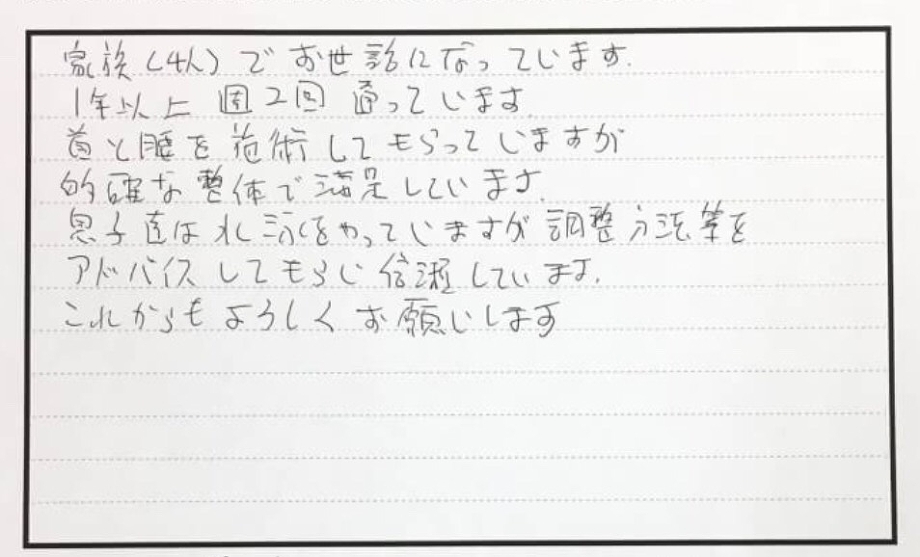 家族(4人)でお世話になっています.
1年以上 週2回 通っています
首と腰を施術してもらっていますが
的確な整体で満足しています.
息子達は水泳をやっていますが調整方法等を
アドバイスしてもらい信頼しています.
これからもよろしくお願いします